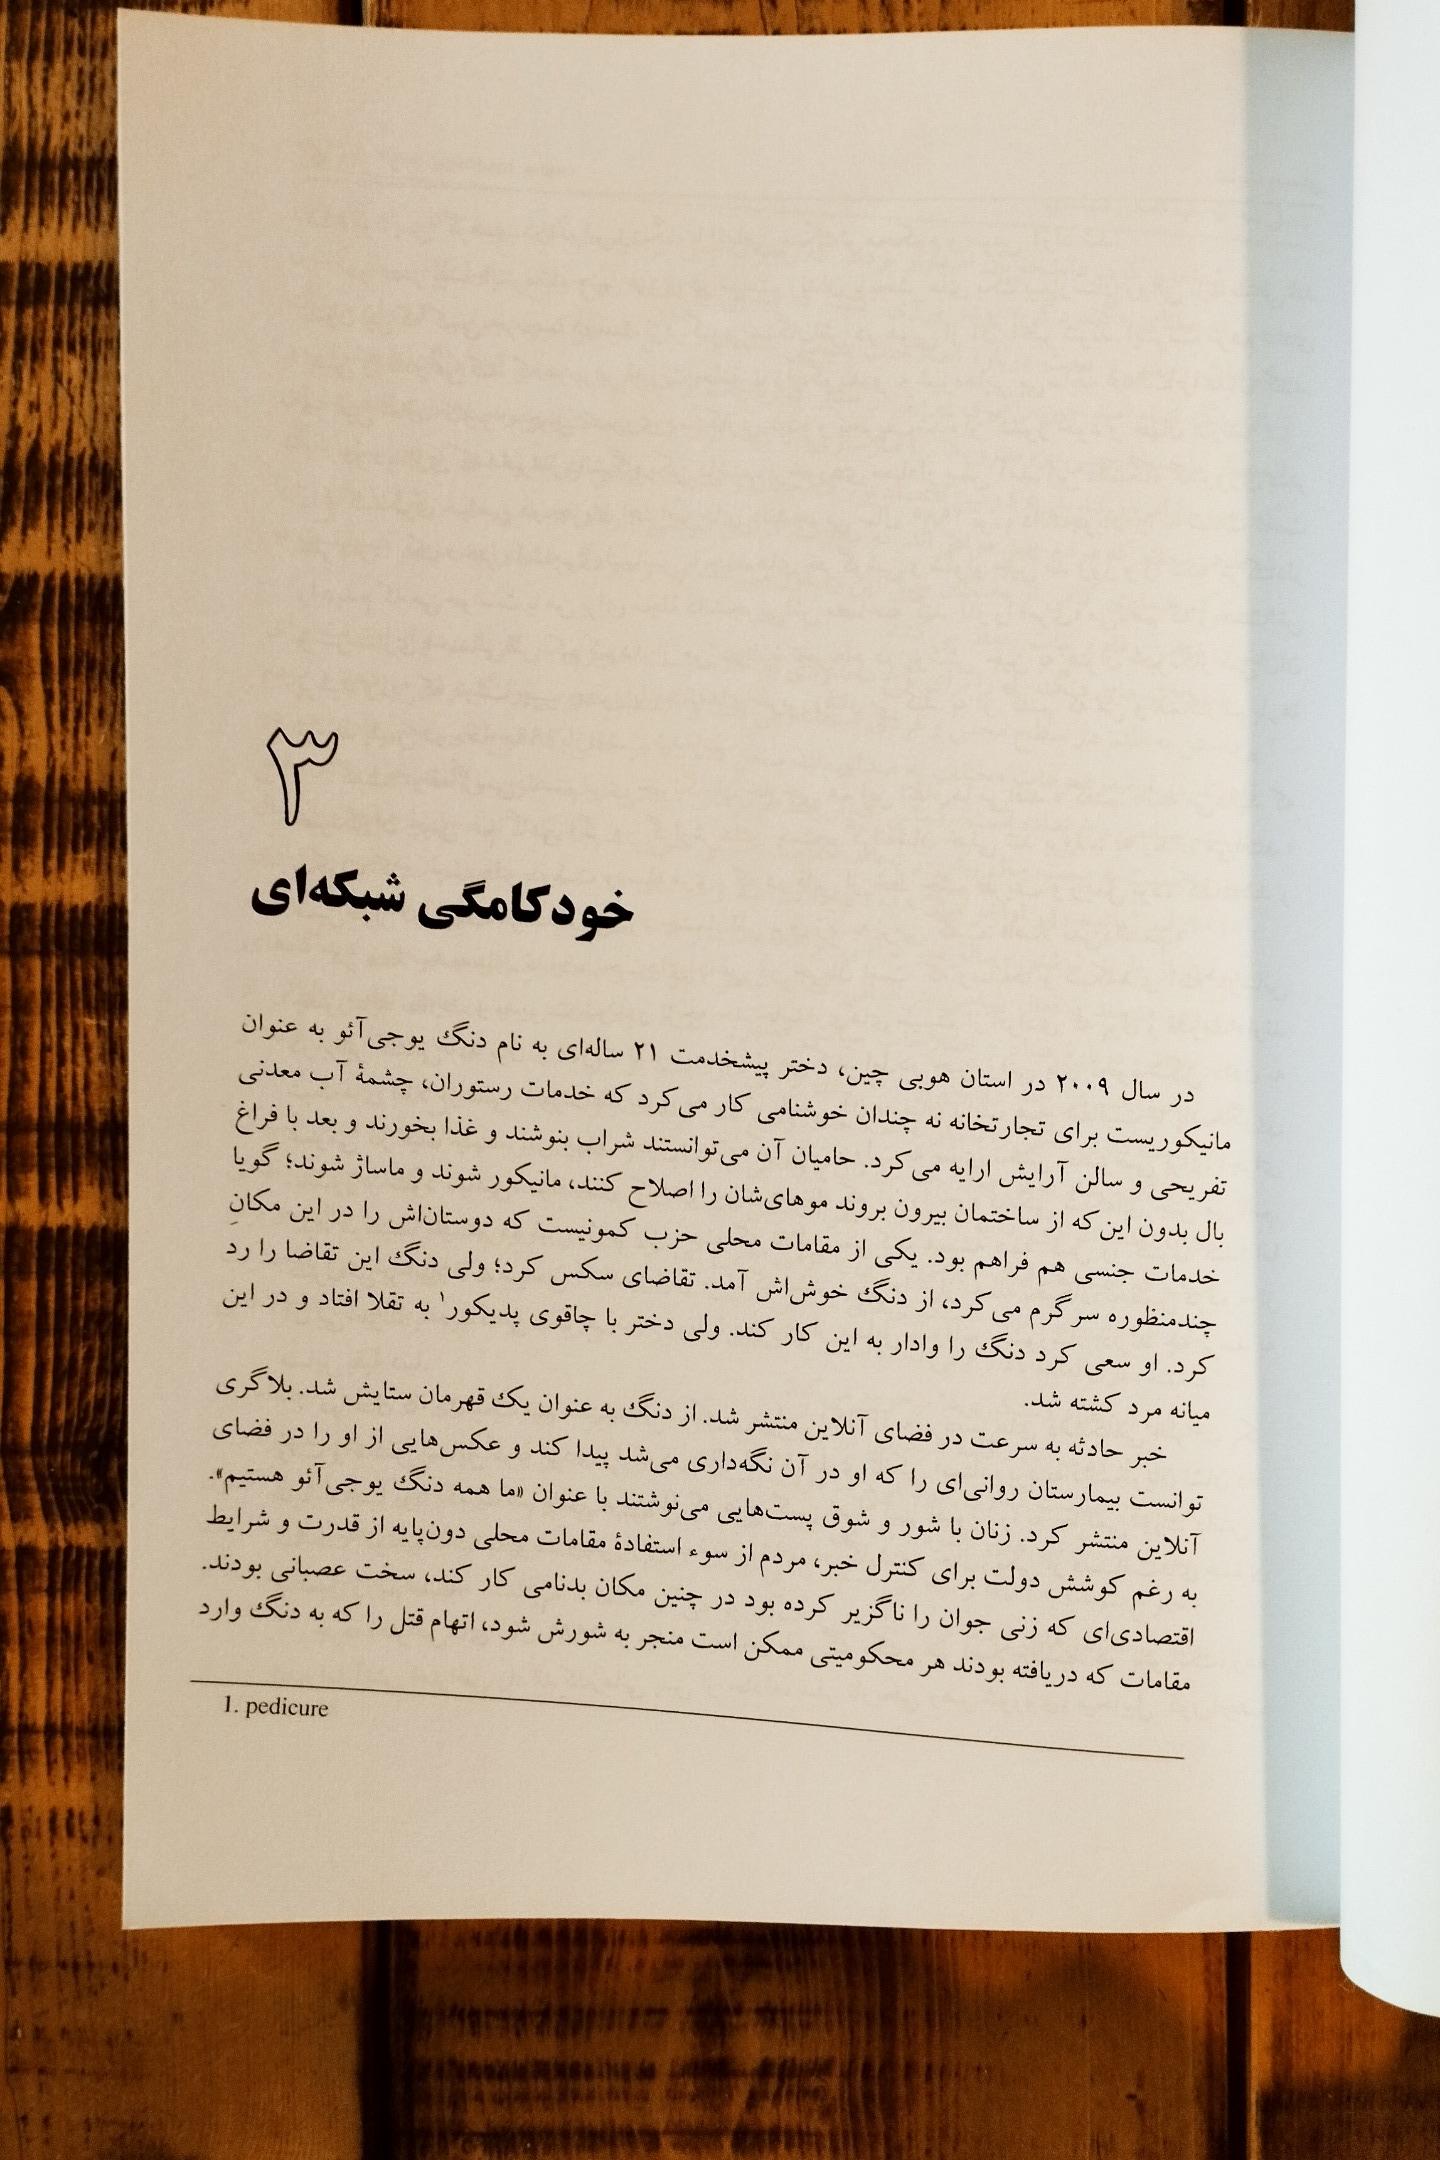 ۳
خودکامگی شبکه‌ای
در سال ۲۰۰۹ در استان هوبی چین، دختر پیشخدمت ۲۱ ساله‌ای به نام دنگ یوجی‌آئو به عنوان
مانیکوریست برای تجارتخانه نه چندان خوشنامی کار می‌کرد که خدمات رستوران، چشمهٔ آب معدنی
تفریحی و سالن آرایش ارایه می‌کرد. حامیان آن می‌توانستند شراب بنوشند و غذا بخورند و بعد با فراغ
بال بدون این‌که از ساختمان بیرون بروند موهای‌شان را اصلاح کنند، مانیکور شوند و ماساژ شوند؛ گویا
خدمات جنسی هم فراهم بود. یکی از مقامات محلی حزب کمونیست که دوستان‌اش را در این مکانِ
چندمنظوره سرگرم می‌کرد، از دنگ خوش‌اش آمد. تقاضای سکس کرد؛ ولی دنگ این تقاضا را رد
کرد. او سعی کرد دنگ را وادار به این کار کند. ولی دختر با چاقوی پدیکور۱ به تقلا افتاد و در این
میانه مرد کشته شد.
خبر حادثه به سرعت در فضای آنلاین منتشر شد. از دنگ به عنوان یک قهرمان ستایش شد. بلاگری
توانست بیمارستان روانی‌ای را که او در آن نگه‌داری می‌شد پیدا کند و عکس‌هایی از او را در فضای
آنلاین منتشر کرد. زنان با شور و شوق پست‌هایی می‌نوشتند با عنوان «ما همه دنگ یوجی‌آئو هستیم».
به رغم کوشش دولت برای کنترل خبر، مردم از سوء استفادهٔ مقامات محلی دون‌پایه از قدرت و شرایط
اقتصادی‌ای که زنی جوان را ناگزیر کرده بود در چنین مکان بدنامی کار کند، سخت عصبانی بودند.
مقامات که دریافته بودند هر محکومیتی ممکن است منجر به شورش شود، اتهام قتل را که به دنگ وارد
1. pedicure